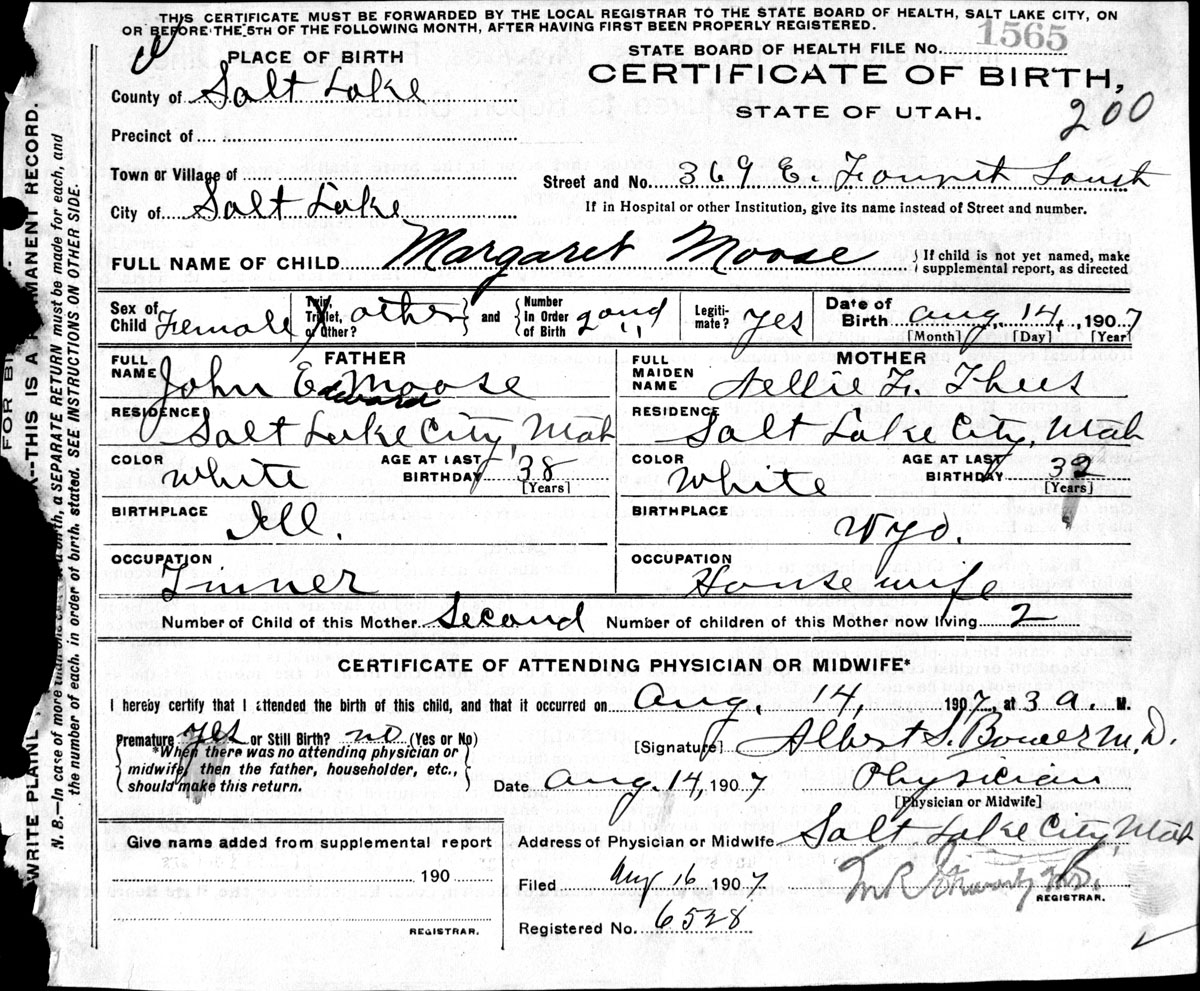 THIS CERTIFICATE MUST BE FORWARDED BY THE LOCAL REGISTRAR TO THE STATE BOARD OF HEALTH, SALT LAKE CITY, ON
OR BEFORE THE 5TH OF THE FOLLOWING MONTH, AFTER HAVING FIRST BEEN PROPERLY REGISTERED.
STATE BOARD OF HEALTH FILE No. 1565
PLACE OF BIRTH
CERTIFICATE OF BIRTH,
County of Salt Lake
STATE OF UTAH.
200
Precinct of
Town or Village of
Street and No. 369 E. Fourth South
City of Salt Lake
If in Hospital or other Institution, give its name instead of Street and number.
FULL NAME OF CHILD Margaret Moose
If child is not yet named, make
supplemental report, as directed
Sex of Child Female
Twin, Triplet, or Other? other
and
Number In Order of Birth 2nd
Legiti-mate? yes
Date of Birth Aug. 14, 1907
[Month] [Day] [Year]
FATHER
FULL NAME John Edward Moose
MOTHER
FULL MAIDEN NAME Nellie F. Thees
RESIDENCE Salt Lake City, Utah
RESIDENCE Salt Lake City, Utah
COLOR White
AGE AT LAST BIRTHDAY 38 [Years]
COLOR White
AGE AT LAST BIRTHDAY 32 [Years]
BIRTHPLACE Ill.
BIRTHPLACE Wyo.
OCCUPATION Tinner
OCCUPATION Housewife
Number of Child of this Mother Second Number of children of this Mother now living 2
CERTIFICATE OF ATTENDING PHYSICIAN OR MIDWIFE*
I hereby certify that I attended the birth of this child, and that it occurred on Aug. 14, 1907, at 3 a. M.
Premature yes or Still Birth? no (Yes or No)
*When there was no attending physician or
midwife, then the father, householder, etc.,
should make this return.
[Signature] Albert S. Bower M.D.
Date Aug. 14, 1907 Physician
[Physician or Midwife]
Give name added from supplemental report
190
REGISTRAR.
Address of Physician or Midwife Salt Lake City, Utah
Filed Aug 16 1907
REGISTRAR.
Registered No. 6528
WRITE PLAINL
THIS IS A
MANENT RECORD.
N. B.—In case of more than one
a SEPARATE RETURN must be made for each, and
the number of each, in order of birth, stated. SEE INSTRUCTIONS ON OTHER SIDE.